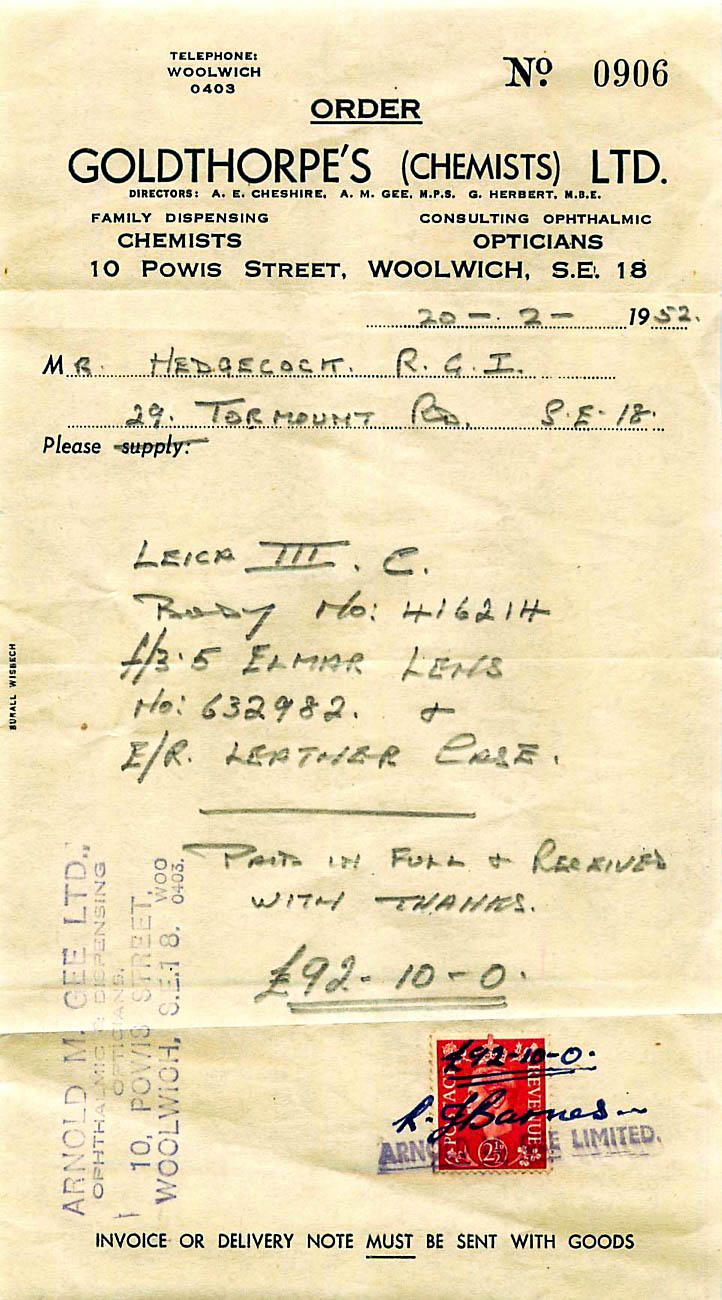 TELEPHONE:
WOOLWICH
0403
Nº 0906
ORDER
GOLDTHORPE'S (CHEMISTS) LTD.
DIRECTORS: A. E. CHESHIRE, A. M. GEE, M.P.S. G. HERBERT, M.B.E.
FAMILY DISPENSING
CHEMISTS
CONSULTING OPHTHALMIC
OPTICIANS
10 POWIS STREET, WOOLWICH, S.E. 18
20 - 2 - 1952.
MR. HEDGECOCK. R. G. I.
29. TORMOUNT RD, S.E-18.
Please supply:
LEICA III. C.
BODY No: 416214
f/3.5 ELMAR LENS
No: 632982. &
E/R. LEATHER CASE.
BURALL WISBECH
PAID IN FULL & RECEIVED
WITH THANKS.
£92-10-0.
ARNOLD M. GEE LTD.,
OPHTHALMIC & DISPENSING
OPTICIANS,
10, POWIS STREET,
WOOLWICH, S.E.18. WOO 0403.
£92-10-0.
R. J. Barnes
POSTAGE REVENUE
2½D
LIMITED.
INVOICE OR DELIVERY NOTE MUST BE SENT WITH GOODS